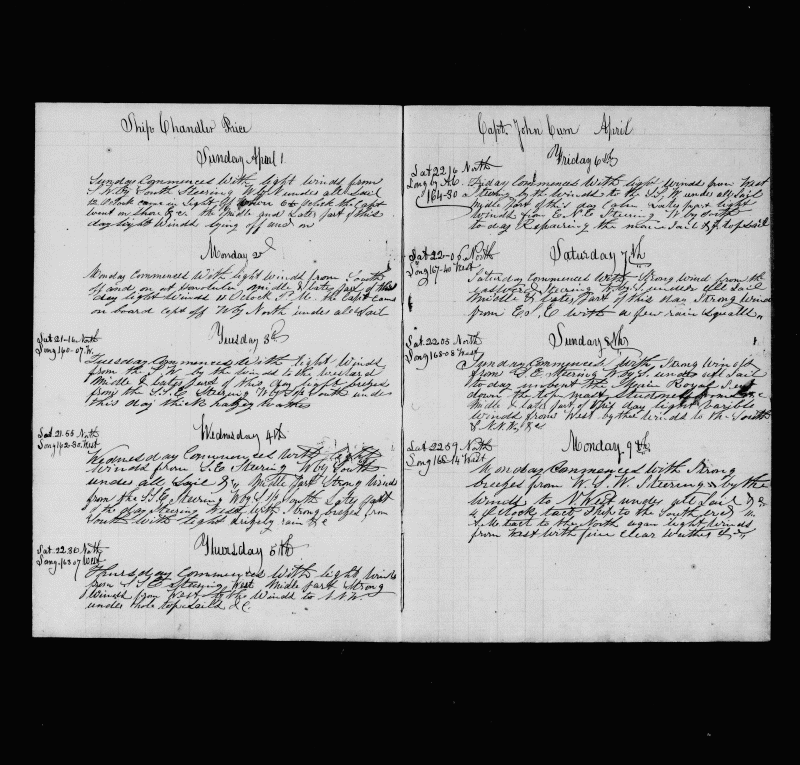 Ship Chandler Price
Sunday April 1
Sunday Commenced With light winds from
S.W. by South Steering W by N under all Sail
12 Oclock came in Sight of 6 Oclock the Capt
went on Shore &c. the Middle and Later Part of this
day light Winds lying off and on
Monday 2d
Monday Commenced With light Winds from South
Middle & Later Part of this
day light Winds 11 Oclock P.M. the Capt came
on board kept off W by North under all Sail
Lat 21-16 North
Long 160-07 W.
Tuesday 3d
Tuesday Commenced With light Winds
from the S.W by the wind to the
Middle & Later part of this day light breezes
from the S.S.E Steering W by South under
this day thick
Lat 21.55 North
Long 162-30 West
Wednesday 4th
Wednesday Commenced With light
Winds from S.E Steering W by South
under all Sail & Middle Part Strong Winds
from the S.E Steering W by South Later Part
of the day Steering West with Strong breezes from
South With light rain &c
Lat. 22.36 North
Long. 163 07 West
Thursday 5th
Thursday Commenced With light Winds
from S.E Steering West Middle part Strong
Winds from by the Winds to N.N.W.
under topsails &c.
Capt. John April
Friday 6th
Lat 22 16 North
Long by
164-30
Friday Commenced With light Winds from West
Steering by the winds to the S.S.W under all Sail
Middle Part of this day Calm Later part light
Winds from E.N.E Steering W by South
to day Repairing the main Sail & topsail
Lat 22-05 North
Long 167-40 West
Saturday 7th
Saturday Commenced With Strong wind from the
Steering W by S. under all Sail
Middle & Later Part of this day Strong Winds
from E.S.E with a few rain Squalls
Lat. 22 05 North
Long 168-08 West
Sunday 8th
Sunday Commenced With Strong Winds
from S.E Steering W by S. under all Sail
to day unbent the Royal Sent
down the top mast
Midle & Later Part of this day light
Winds from West by the Winds to the South
& N.W. &c
Lat 22 39 North
Long 168-14 West
Monday 9th
Monday Commenced with Strong
breezes from W.S.W Steering by the
Winds to N West under all Sail &c
4 Oclock tact Ship to the South
A.M. tact to the North again light Winds
from West with fine clear Weather &c